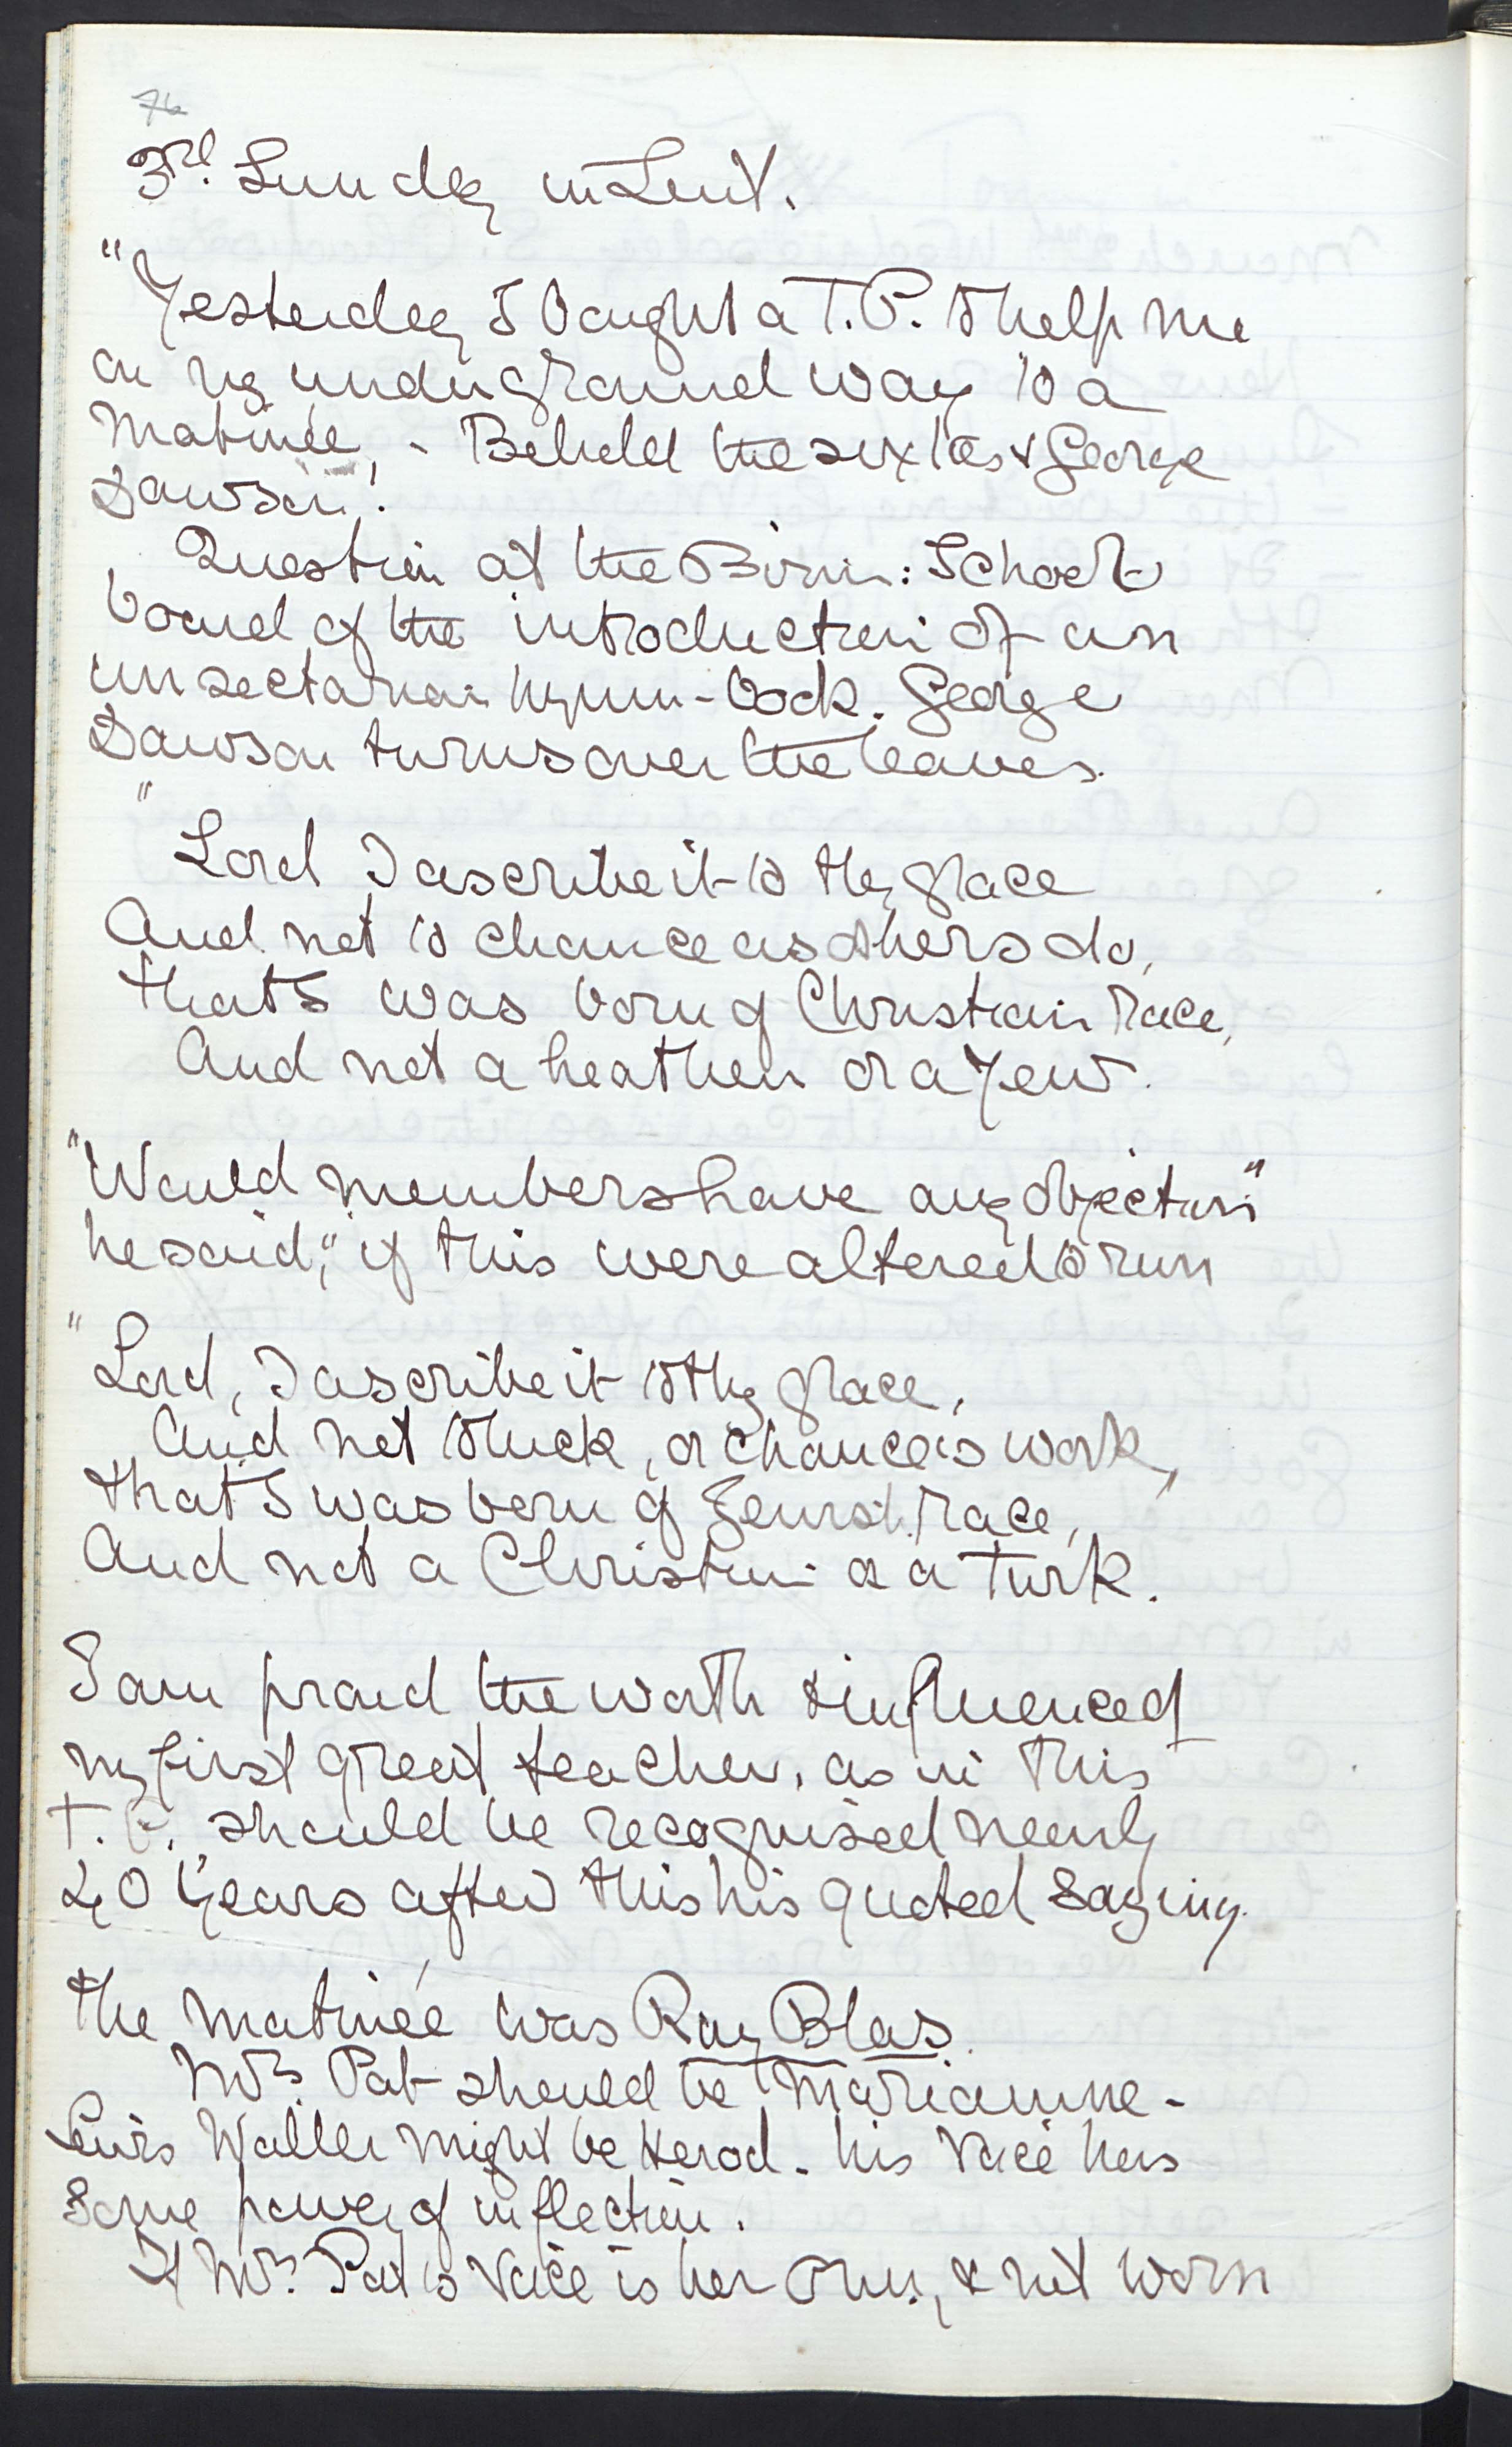 76
3rd. Sunday in Lent.
"Yesterday I bought a T.P. to help me
on my underground way to a
Matinée, - Behold the sixties & George
Dawson!
Question at the Birm: School-
board of the introduction of an
unsectarian hymn-book. George
Dawson turns over the leaves.
"Lord I ascribe it to thy grace
And not to chance as others do,
that I was born of Christian race,
And not a heathen or a Jew.
"Would members have any objection"
he said, "if this were altered to run
"Lord, I ascribe it to thy grace,
And not to luck, or chance's work,
that I was born of Jewish race,
And not a Christian or a Turk.
I am proud the worth & influence of
my first great teacher, as in this
T.P. should be recognised nearly
40 years after this his quoted saying.
The matinée was Ruy Blas.
Mrs. Pat should be Mariamne -
Lewis Waller might be Herod - his voice has
some power of inflection.
If Mrs. Pat's voice is her own, & not worn